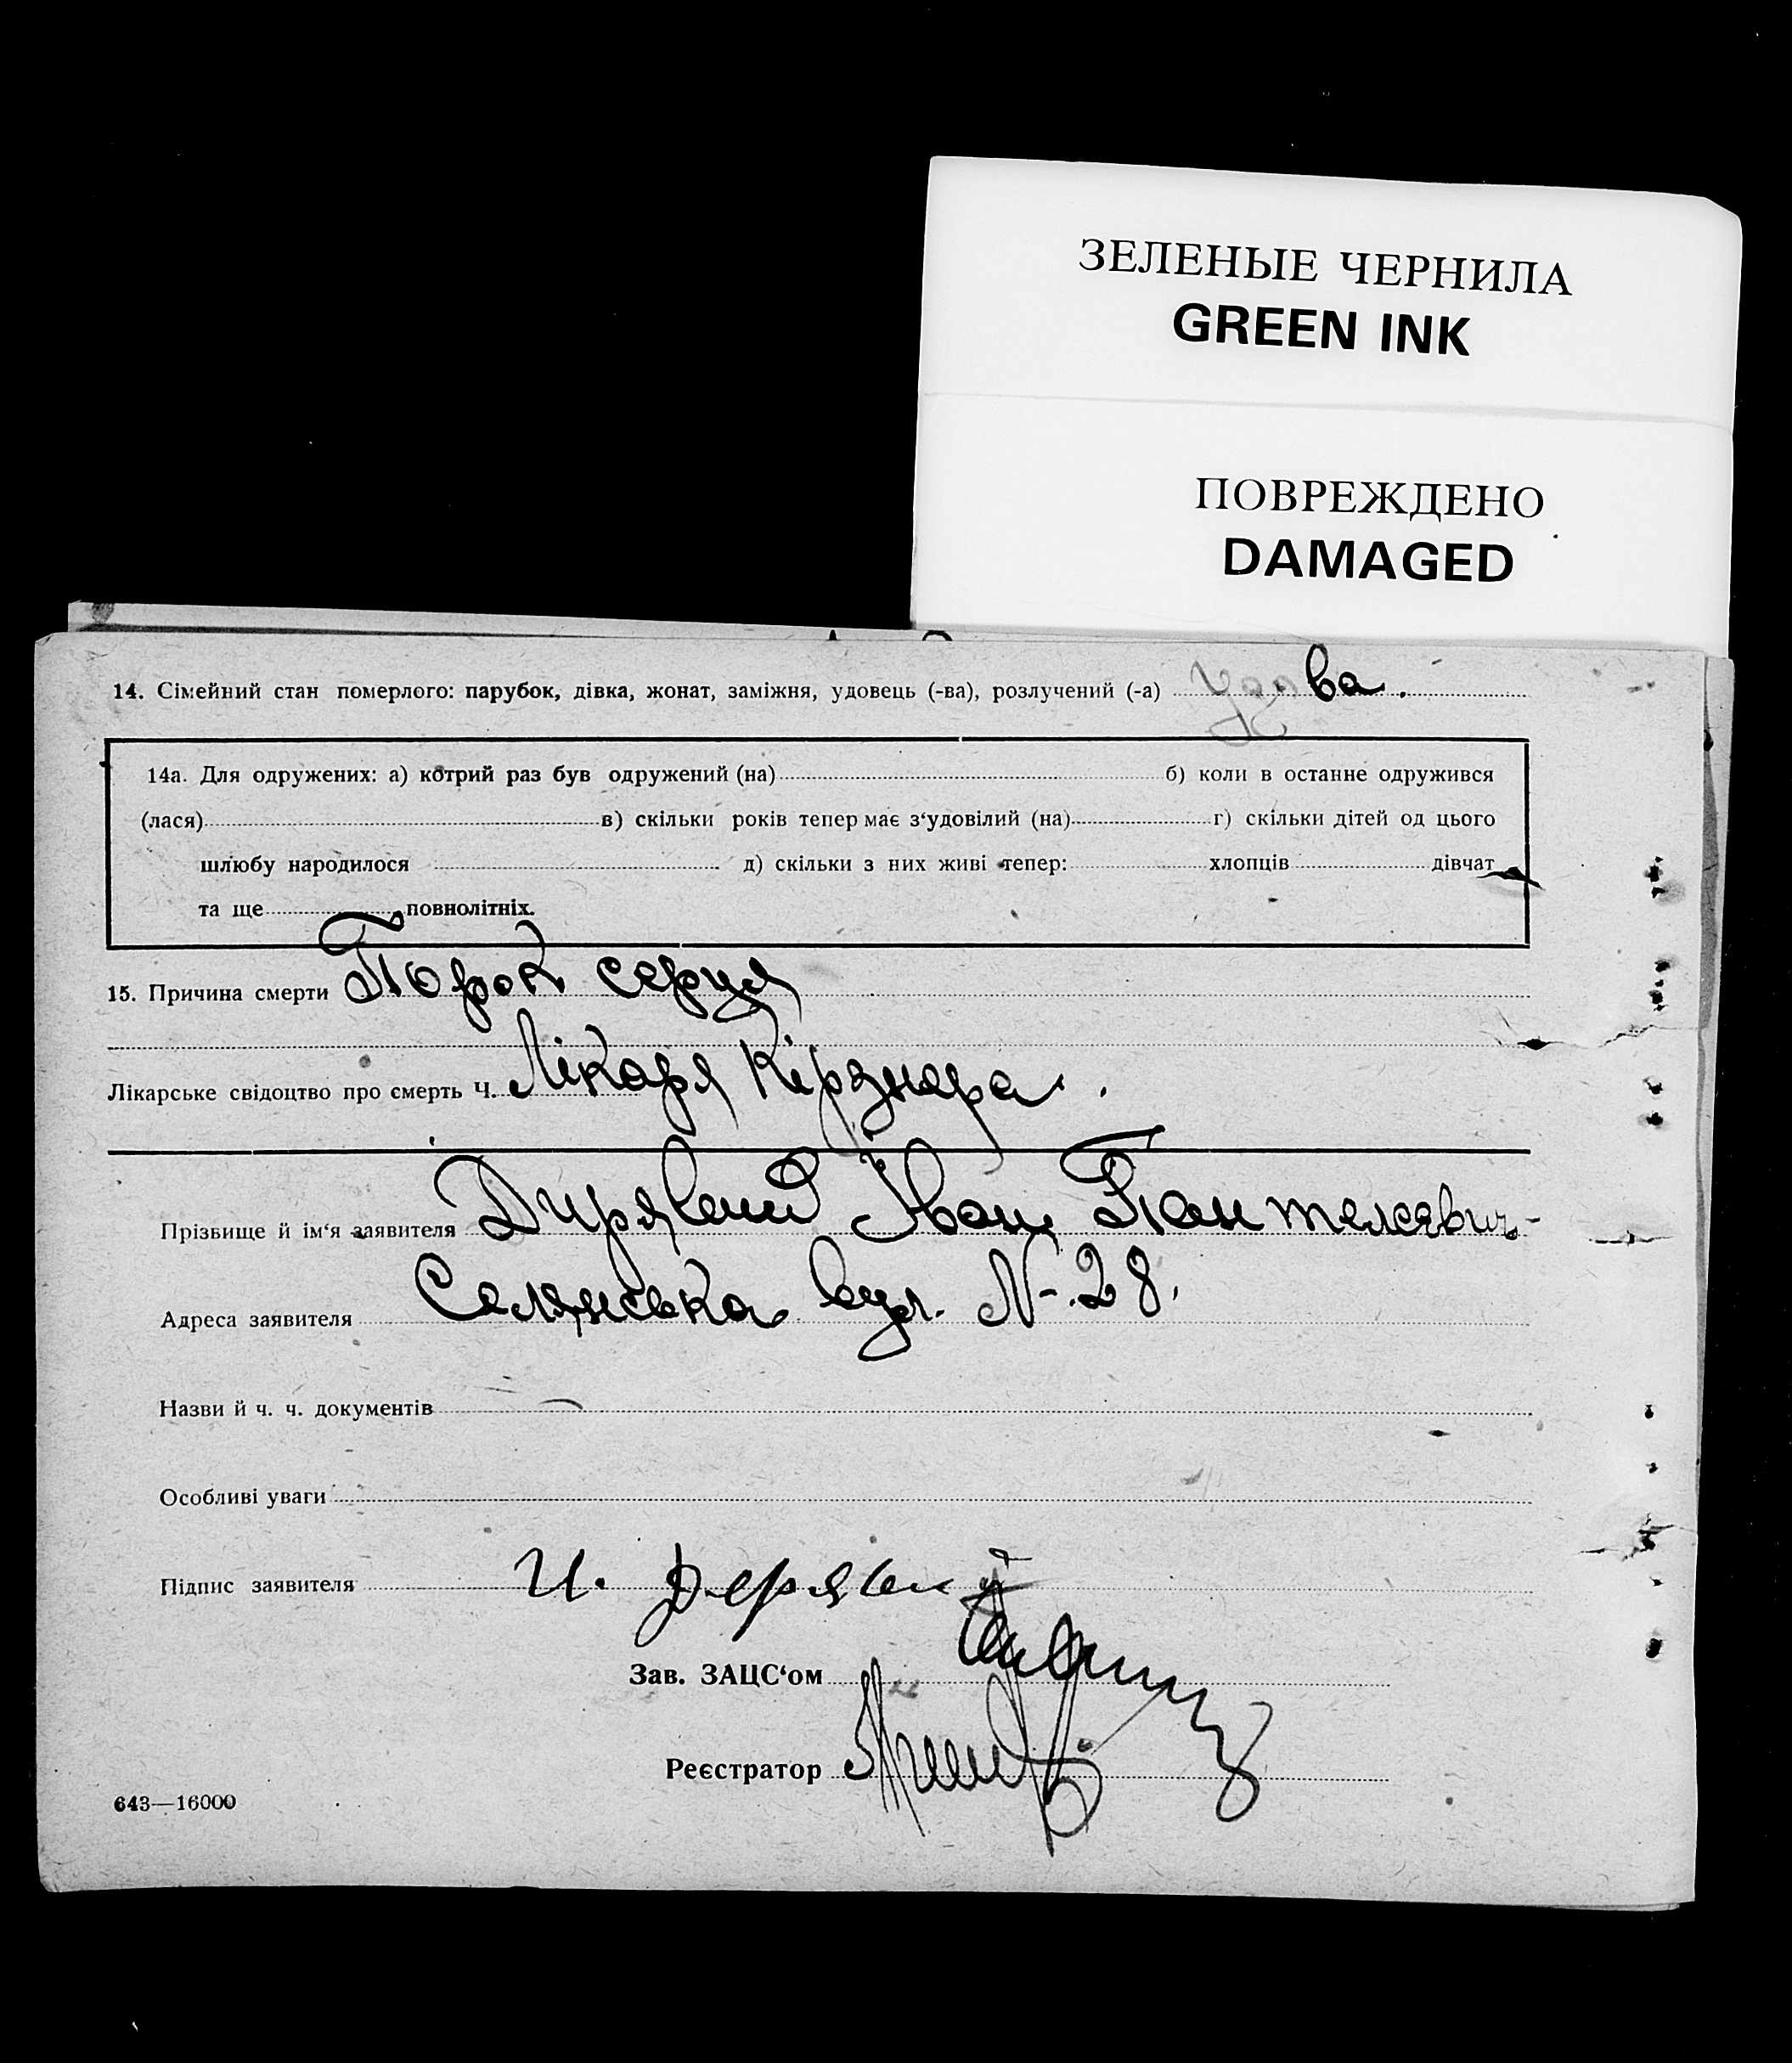 ЗЕЛЕНЫЕ ЧЕРНИЛА
GREEN INK
ПОВРЕЖДЕНО
DAMAGED
14. Сімейний стан померлого: парубок, дівка, жонат, заміжня, удовець (-ва), розлучений (-а) удова.
14а. Для одружених: а) котрий раз був одружений (на) б) коли в останне одружився
(лася) в) скільки років тепер має з‘удовілий (на) г) скільки дітей од цього
шлюбу народилося д) скільки з них живі тепер: хлопців дівчат
та ще повнолітніх.
15. Причина смерти Порок серця
Лікарське свідоцтво про смерть Ч. Лікаря Кірзнера.
Прізвище й ім'я заявителя Дирявий Іван Пантелеевич
Адреса заявителя Селянська вул. N-28.
Назви й ч. ч. документів —
Особливі уваги
Підпис заявителя И. Дерявий
Зав. ЗАЦС‘ом
Реєстратор
643—16000